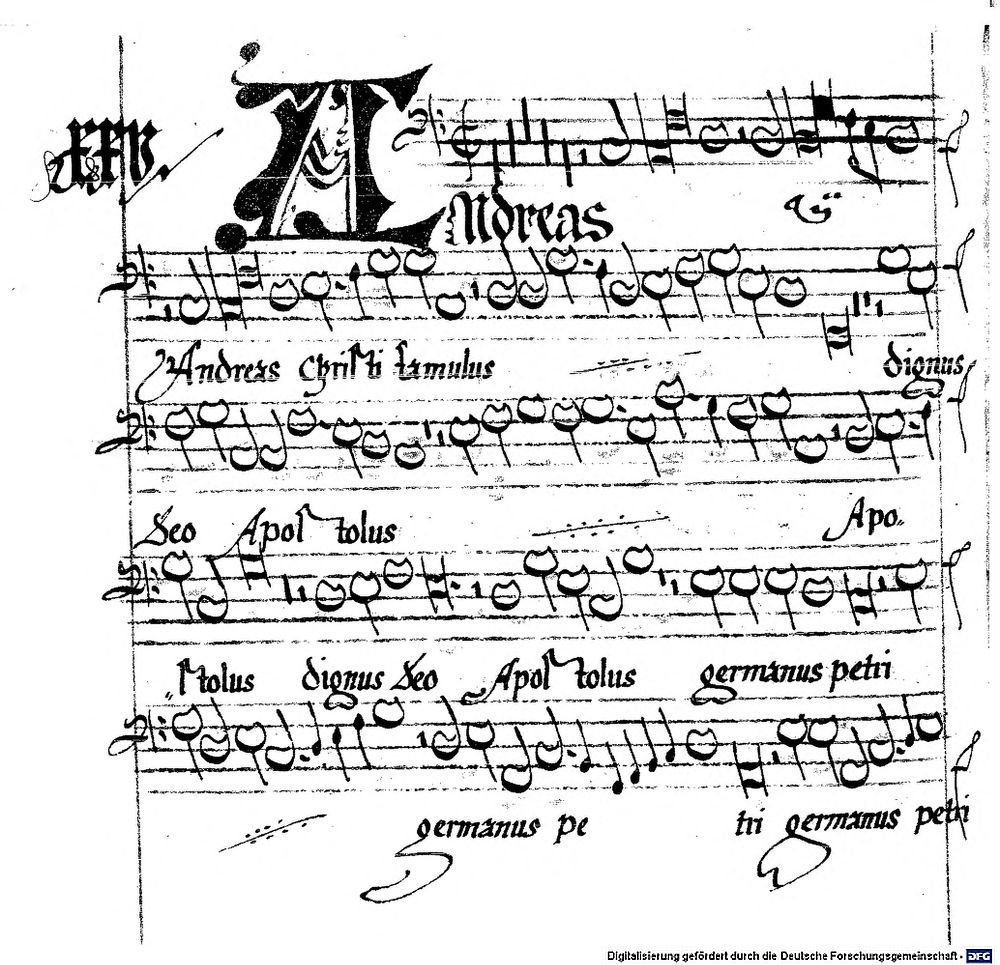 XXV.
Andreas ij
Andreas Christi famulus dignus
Deo Apos tolus Apo
stolus dignus Deo Apos tolus germanus petri
germanus pe tri germanus petri
Digitalisierung gefördert durch die Deutsche Forschungsgemeinschaft - DFG